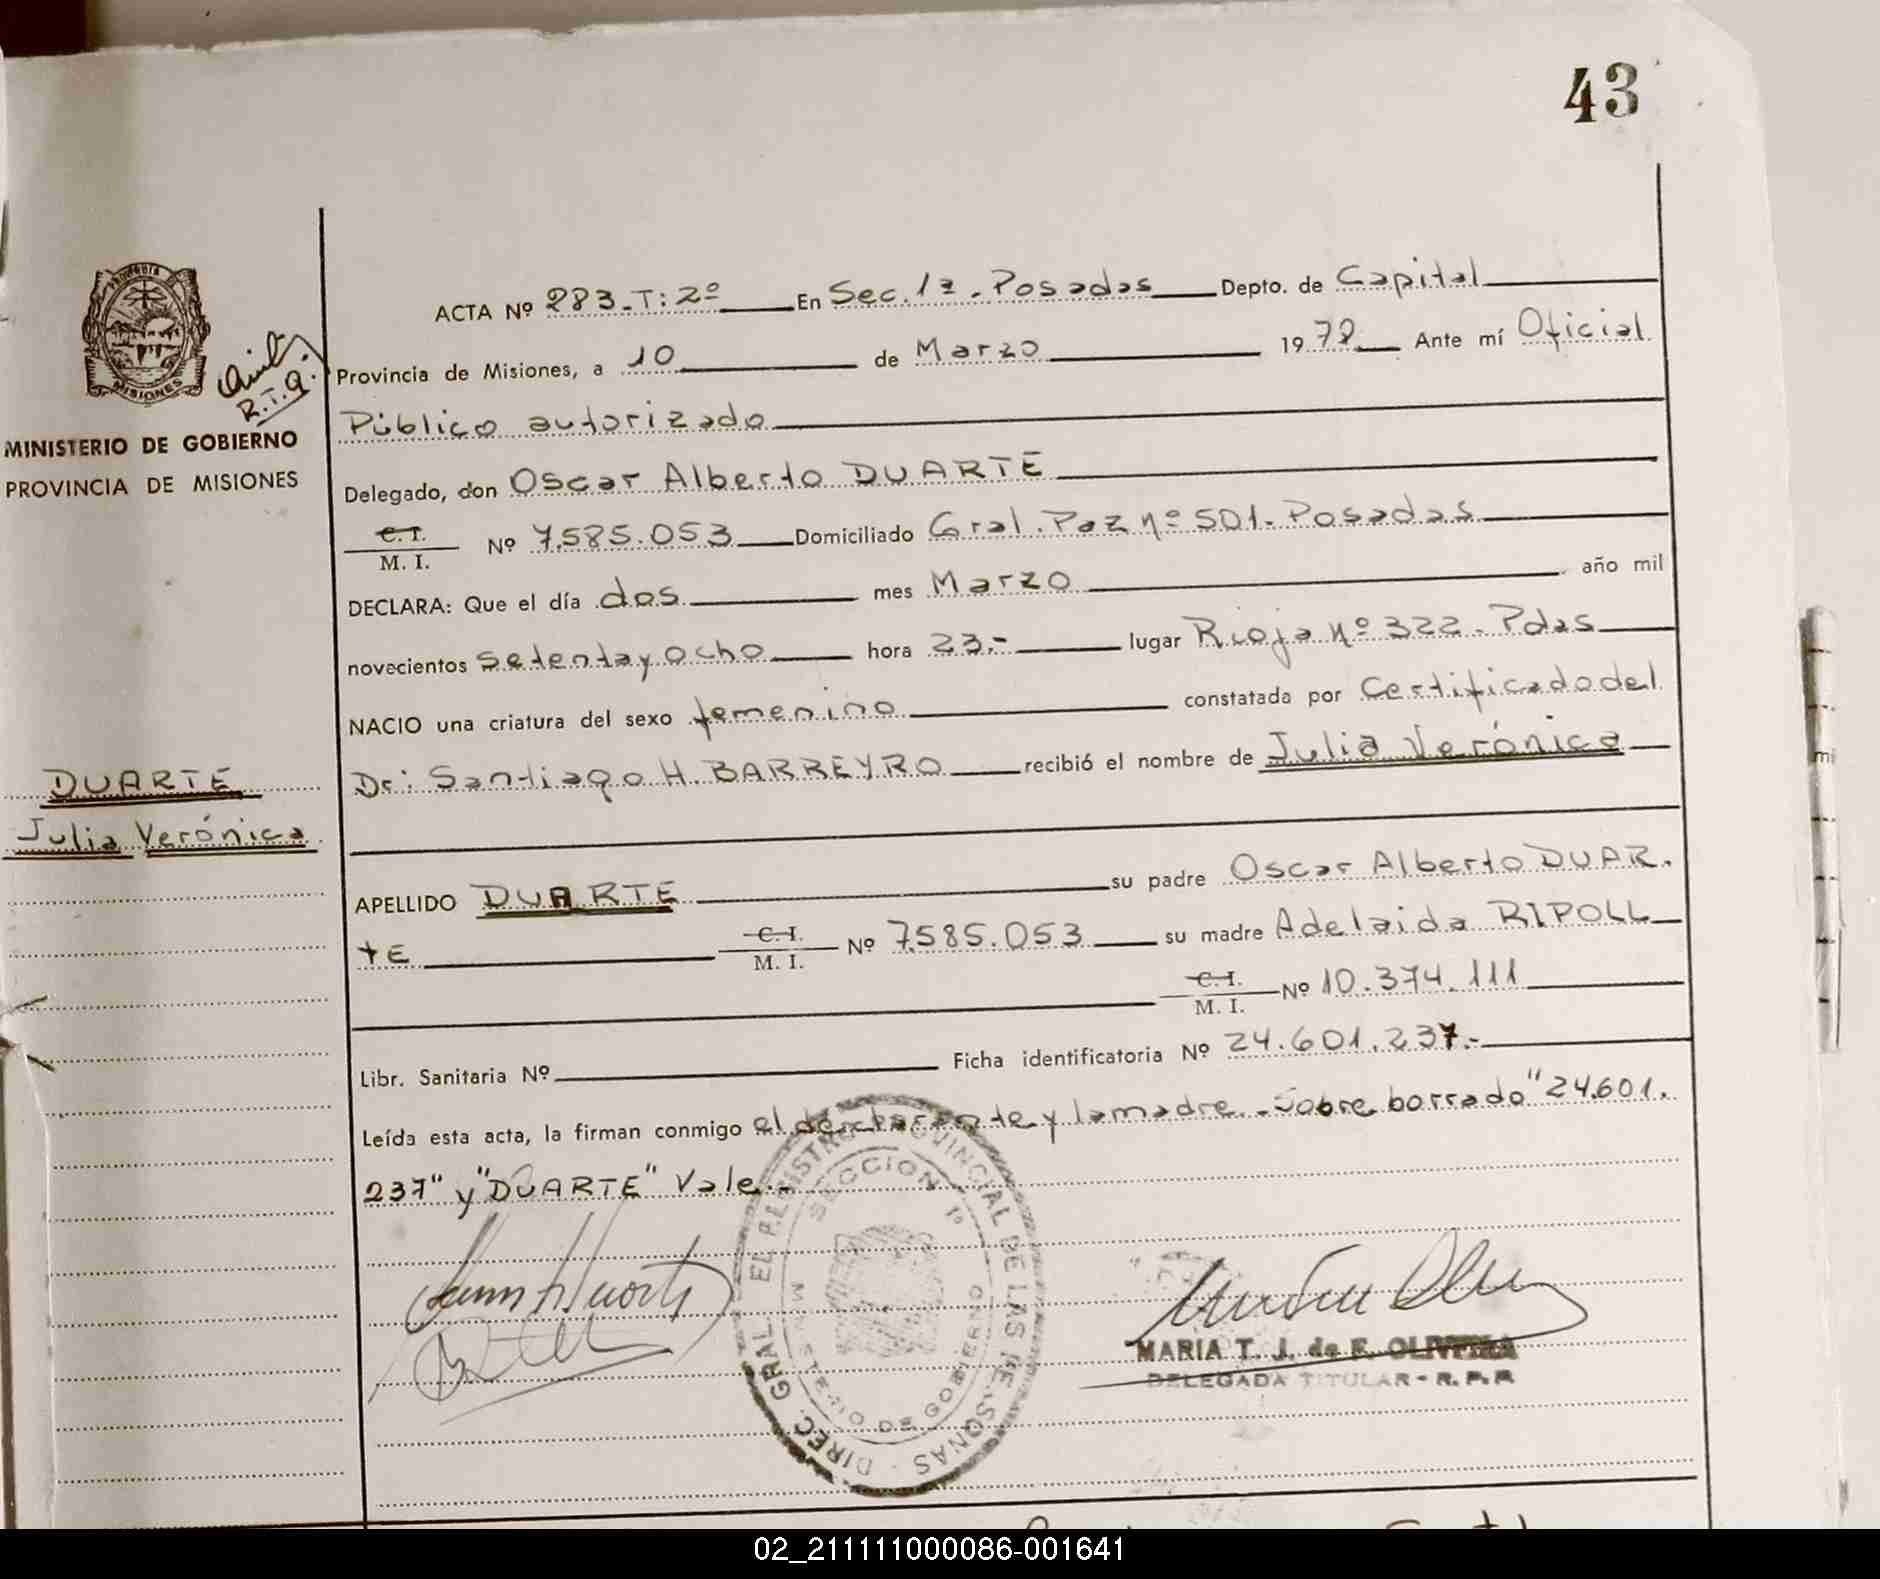 43
ACTA Nº 283-T: 2º En Sec. 1ª. Posadas Depto. de Capital
Provincia de Misiones, a 10 de Marzo 1978 Ante mí Oficial
R.T.G.
Público autorizado
MINISTERIO DE GOBIERNO
PROVINCIA DE MISIONES
Delegado, don Oscar Alberto DUARTE
C. I. M. I. Nº 7.585.053 Domiciliado Gral. Paz nº 501. Posadas
DECLARA: Que el día dos mes Marzo año mil
novecientos setenta y ocho hora 23.- lugar Rioja nº 322. Pdas
NACIO una criatura del sexo femenino constatada por Certificado del
Dr: Santiago H. BARREYRO recibió el nombre de Julia Verónica
DUARTE
Julia Verónica
APELLIDO DUARTE su padre Oscar Alberto DUAR.
TE C. I. M. I. Nº 7.585.053 su madre Adelaida RIPOLL
C. I. M. I. Nº 10.374.111
Libr. Sanitaria Nº Ficha identificatoria Nº 24.601.237.-
Leída esta acta, la firman conmigo el declarante y la madre.-Sobre borrado "24.601.
237" y "DUARTE" Vale.-
DIREC. GRAL. DEL REGISTRO PROVINCIAL DE LAS PERSONAS
SECCION 1º
MINISTERIO DE GOBIERNO
MARIA T. J. de F. OLIVEIRA
DELEGADA TITULAR - R. P. P.
02_211111000086-001641